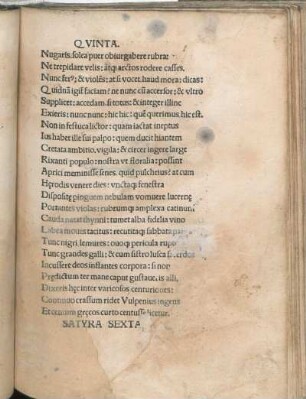 QVINTA.
Nugaris. solea puer obiurgabere rubra:
Ne trepidare velis: atq; arctos rodere casses.
Nunc fer⁹; & violēs: at si vocet. haud mora: dicas:
Quidnā igit̄ faciam? ne nunc cū accersor: & vltro
Supplicet: accedam. si totus: & integer illinc
Exieris: nunc nunc: hic hic: quē querimus hic est.
Non in festuca lictor: quam iactat ineptus
Ius habet ille sui palpo: quem ducit hiantem
Cretata ambitio. vigila: & cicer ingere large
Rixanti populo: nostra vt floralia: possint
Aprici meminisse senes. quid pulchrius? at cum
Herodis venere dies: vnctaq; fenestra
Dispositę pinguem nebulam vomuere lucernę
Portantes violas: rubrumq; amplexa catinum
Cauda natat thynni: tumet alba fidelia vino
Labra moues tacitus: recutitaq; sabbata
Tunc nigri lemures: ouoq; pericula rupto
Tunc grandes galli: & cum sistro lusca sacerdos
Incussere deos inflantes corpora: si non
Prędictum ter mane caput gustaue
Dixeris hęc inter varicosos centuriões:
Continuo crassum ridet Vulpenius ingens
Et centum gręcos curto centusse licetur.
SATYRA SEXTA